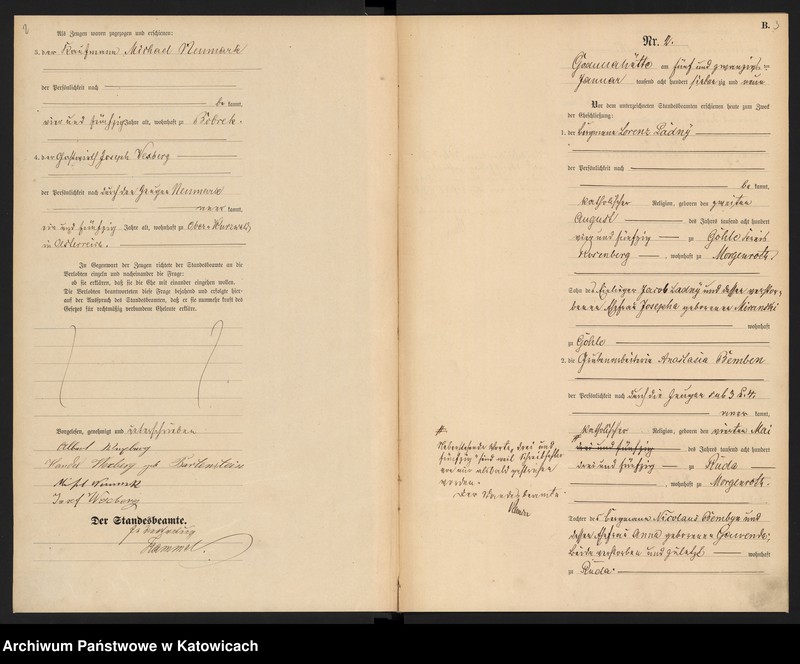 2
Als Zeugen waren zugezogen und erschienen:
3. der Kaufmann Michael Neumark
der Persönlichkeit nach
be kannt,
vier und fünfzig Jahre alt, wohnhaft zu Bobrek.
4. der Gastwirth Joseph
der Persönlichkeit nach durch den Zeugen Neumark
aner kannt,
ein und fünfzig Jahre alt, wohnhaft zu Ober-Kurzwald
in Österreich.
In Gegenwart der Zeugen richtete der Standesbeamte an die
Verlobten einzeln und nacheinander die Frage:
ob sie erklären, daß sie die Ehe mit einander eingehen wollen.
Die Verlobten beantworteten diese Frage bejahend und erfolgte hier-
auf der Ausspruch des Standesbeamten, daß er sie nunmehr kraft des
Gesetzes für rechtmäßig verbundene Eheleute erkläre.
Vorgelesen, genehmigt und unterschrieben
Albert
geb Bartenstein
Neumark
Josef
Der Standesbeamte.
In Vertretung
Hammel.
B. 3
Nr. 2.
Godullahütte am fünf und zwanzigsten
Januar tausend acht hundert siebenzig und neun
Vor dem unterzeichneten Standesbeamten erschienen heute zum Zweck
der Eheschließung:
1. der Bergmann Lorenz Ladny
der Persönlichkeit nach
be kannt,
katholischer Religion, geboren den zweiten
August des Jahres tausend acht hundert
vier und fünfzig zu Göhle Kreis
Rosenberg, wohnhaft zu Morgenroth
Sohn des Einlieger Jacob Ladny und dessen verstor-
benen Ehefrau Josepha geborenen
wohnhaft
zu Göhle
2. die Grubenarbeiterin Anastasia Bemben
der Persönlichkeit nach durch die Zeugen sub 3 & 4.
aner kannt,
katholischer Religion, geboren den vierten Mai
# drei und fünfzig des Jahres tausend acht hundert
drei und fünfzig zu Ruda
, wohnhaft zu Morgenroth
Tochter des Bergmanns Nicolaus Bembyn und
dessen Ehefrau Anna geborenen
beide verstorben und zuletzt wohnhaft
zu Ruda.
#
Nebenstehende Worte „drei und
fünfzig“ sind weil Schreibfehler
alsbald gestrichen
worden.
Der Standesbeamte.
Archiwum Państwowe w Katowicach